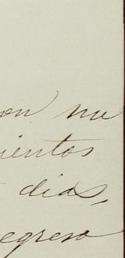 on mi
ientos
dias,
egreso